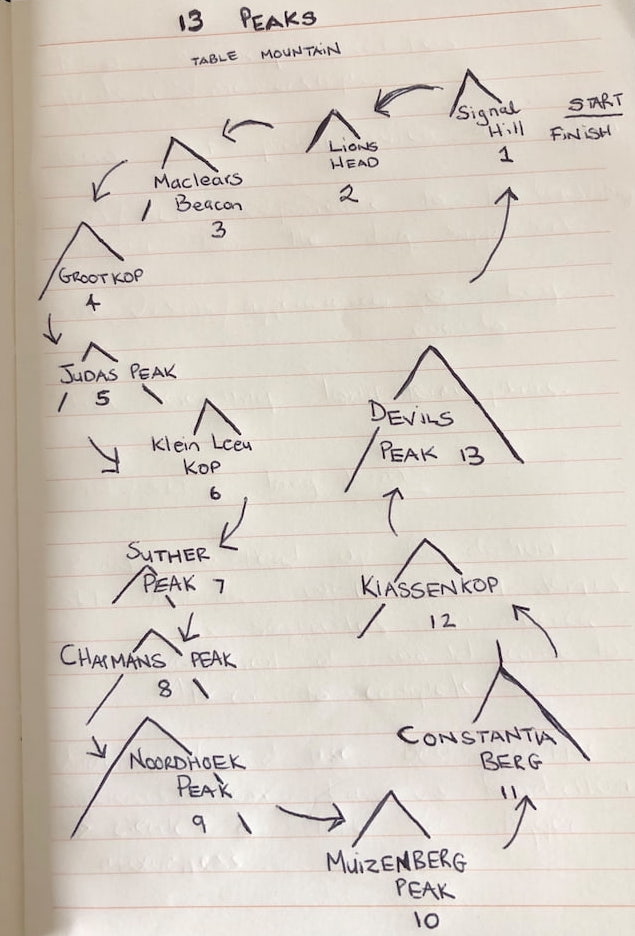 13 PEAKS
TABLE MOUNTAIN
Signal
Hill
1
START
FINISH
LIONS
HEAD
2
Maclears
Beacon
3
GROOTKOP
4
JUDAS PEAK
5
Klein Leeu
KOP
6
SUTHER
PEAK 7
CHAPMANS PEAK
8
NOORDHOEK
PEAK
9
MUIZENBERG
PEAK
10
CONSTANTIA
BERG
11
KLASSENKOP
12
DEVILS
PEAK 13